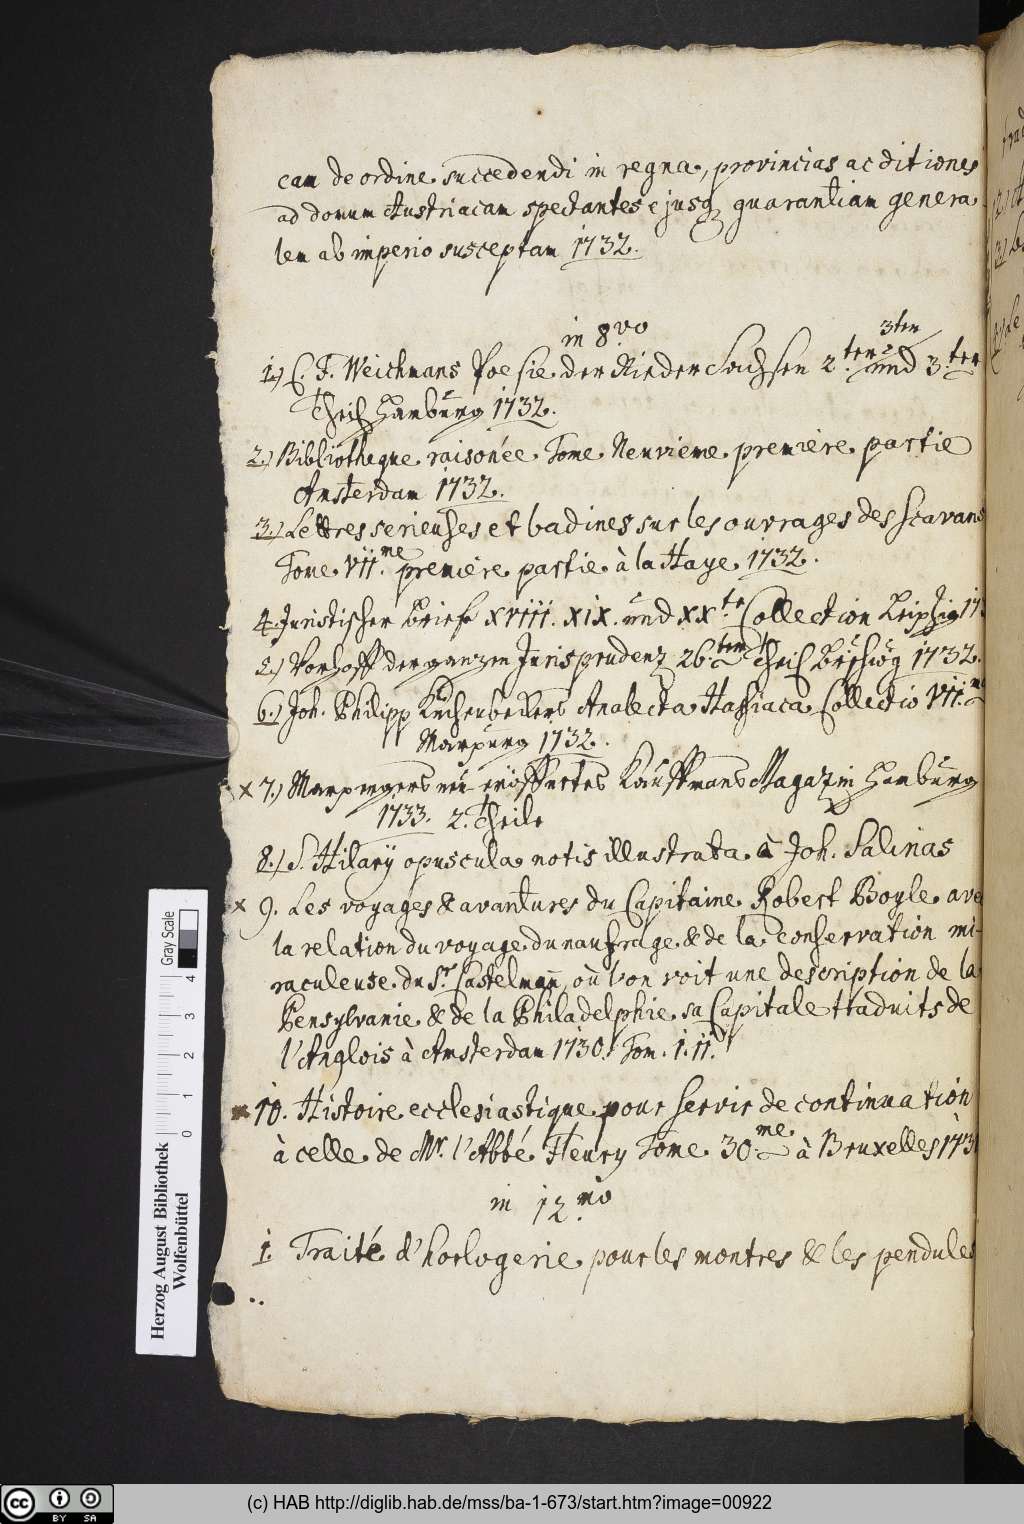 cam de ordine succedendi in regna, provincias ac ditiones
ad domum Austriacam spectantes ejusq guarantiam genera
lem ab imperio susceptam 1732.
in 8.vo
3ten
1.) C. F. Weichmans Poesie der Nieder Sachsen 2.ten und 3.ten
Theil Hamburg 1732.
2.) Bibliotheque raisonée Tome Neuvieme premiere partie
Amsterdam 1732.
3.) Lettres serieuses et badines sur les ouvrages des scavans
Tome VII.me premiere partie à la Haye 1732.
4. Juristischer Briefe XVIII. XIX. und XX.te Collection Leipzig 17
5.) Vorhoff der ganzen Jurisprudenz 26.ten Theil 1732.
6.) Joh. Philipp Kuchenbeckers Analecta Hassiaca Collectio VII.ma
Marpurg 1732.
x 7.) Marpergers neu eröffnetes Kauffmans Magazin Hamburg
1733. 2. Theile
8.) S. Hilarÿ opuscula notis illustrata à Joh. Salinas
x 9. Les voyages & avantures du Capitaine Robert Boyle ave
la relation du voyage du naufrage & de la conservation mi-
raculeuse du Sr. Castelman, où l'on voit une description de la
Pensylvanie & de la Philadelphie sa Capitale traduits de
l'Anglois à Amsterdam 1730. Tom. I. II.
x 10. Histoire ecclesiastique pour servir de continuation
à celle de Mr. l'Abbé Fleury Tome 30.me à Bruxelles 173
in 12.mo
1. Traité d'horlogerie pour les montres & les pendules
Herzog August Bibliothek
Wolfenbüttel
0 1 2 3 4
Gray Scale
(c) HAB http://diglib.hab.de/mss/ba-1-673/start.htm?image=00922
BY SA